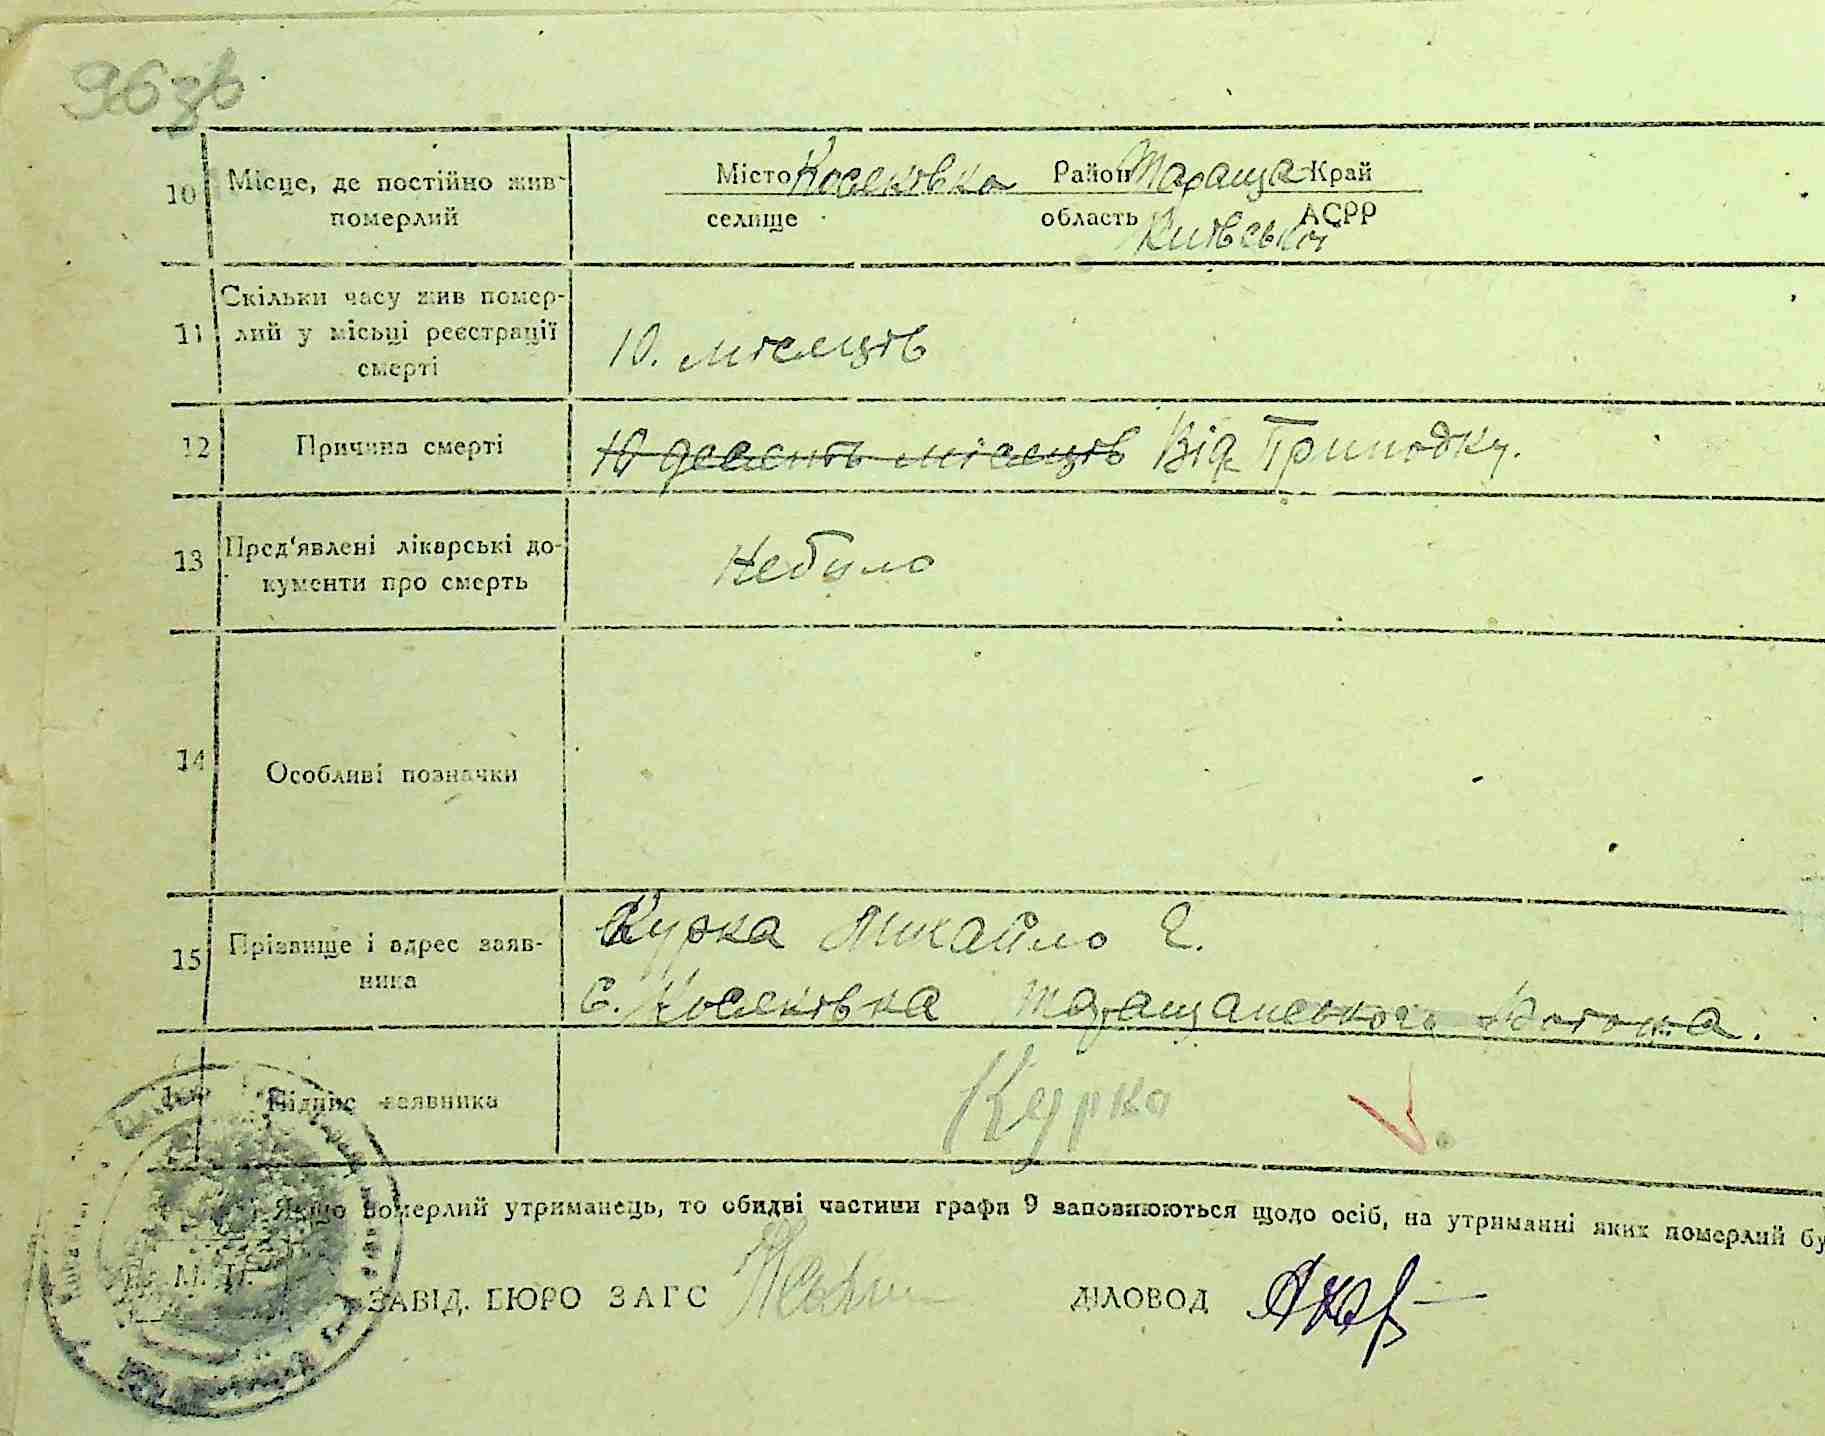 96 зв
10 Місце, де постійно жив померлий Місто Косяковка Район Тараща Край
селище область Київська АСРР
11 Скільки часу жив помер-
лий у місьці реєстрації
смерті
10. місяців
12 Причина смерті 10 десять місяців Від Припадку.
13 Пред'явлені лікарські до-
кументи про смерть
Небуло
14 Особливі позначки
15 Прізвище і адрес заяв-
ника
Курка Михайло Є.
с. Косяківка Таращанського Району.
Підпис заявника Курка
Якщо померлий утриманець, то обидві частини графи 9 заповнюються щодо осіб, на утриманні яких померлий бу
М. П.
ЗАВІД. БЮРО ЗАГС ДІЛОВОД